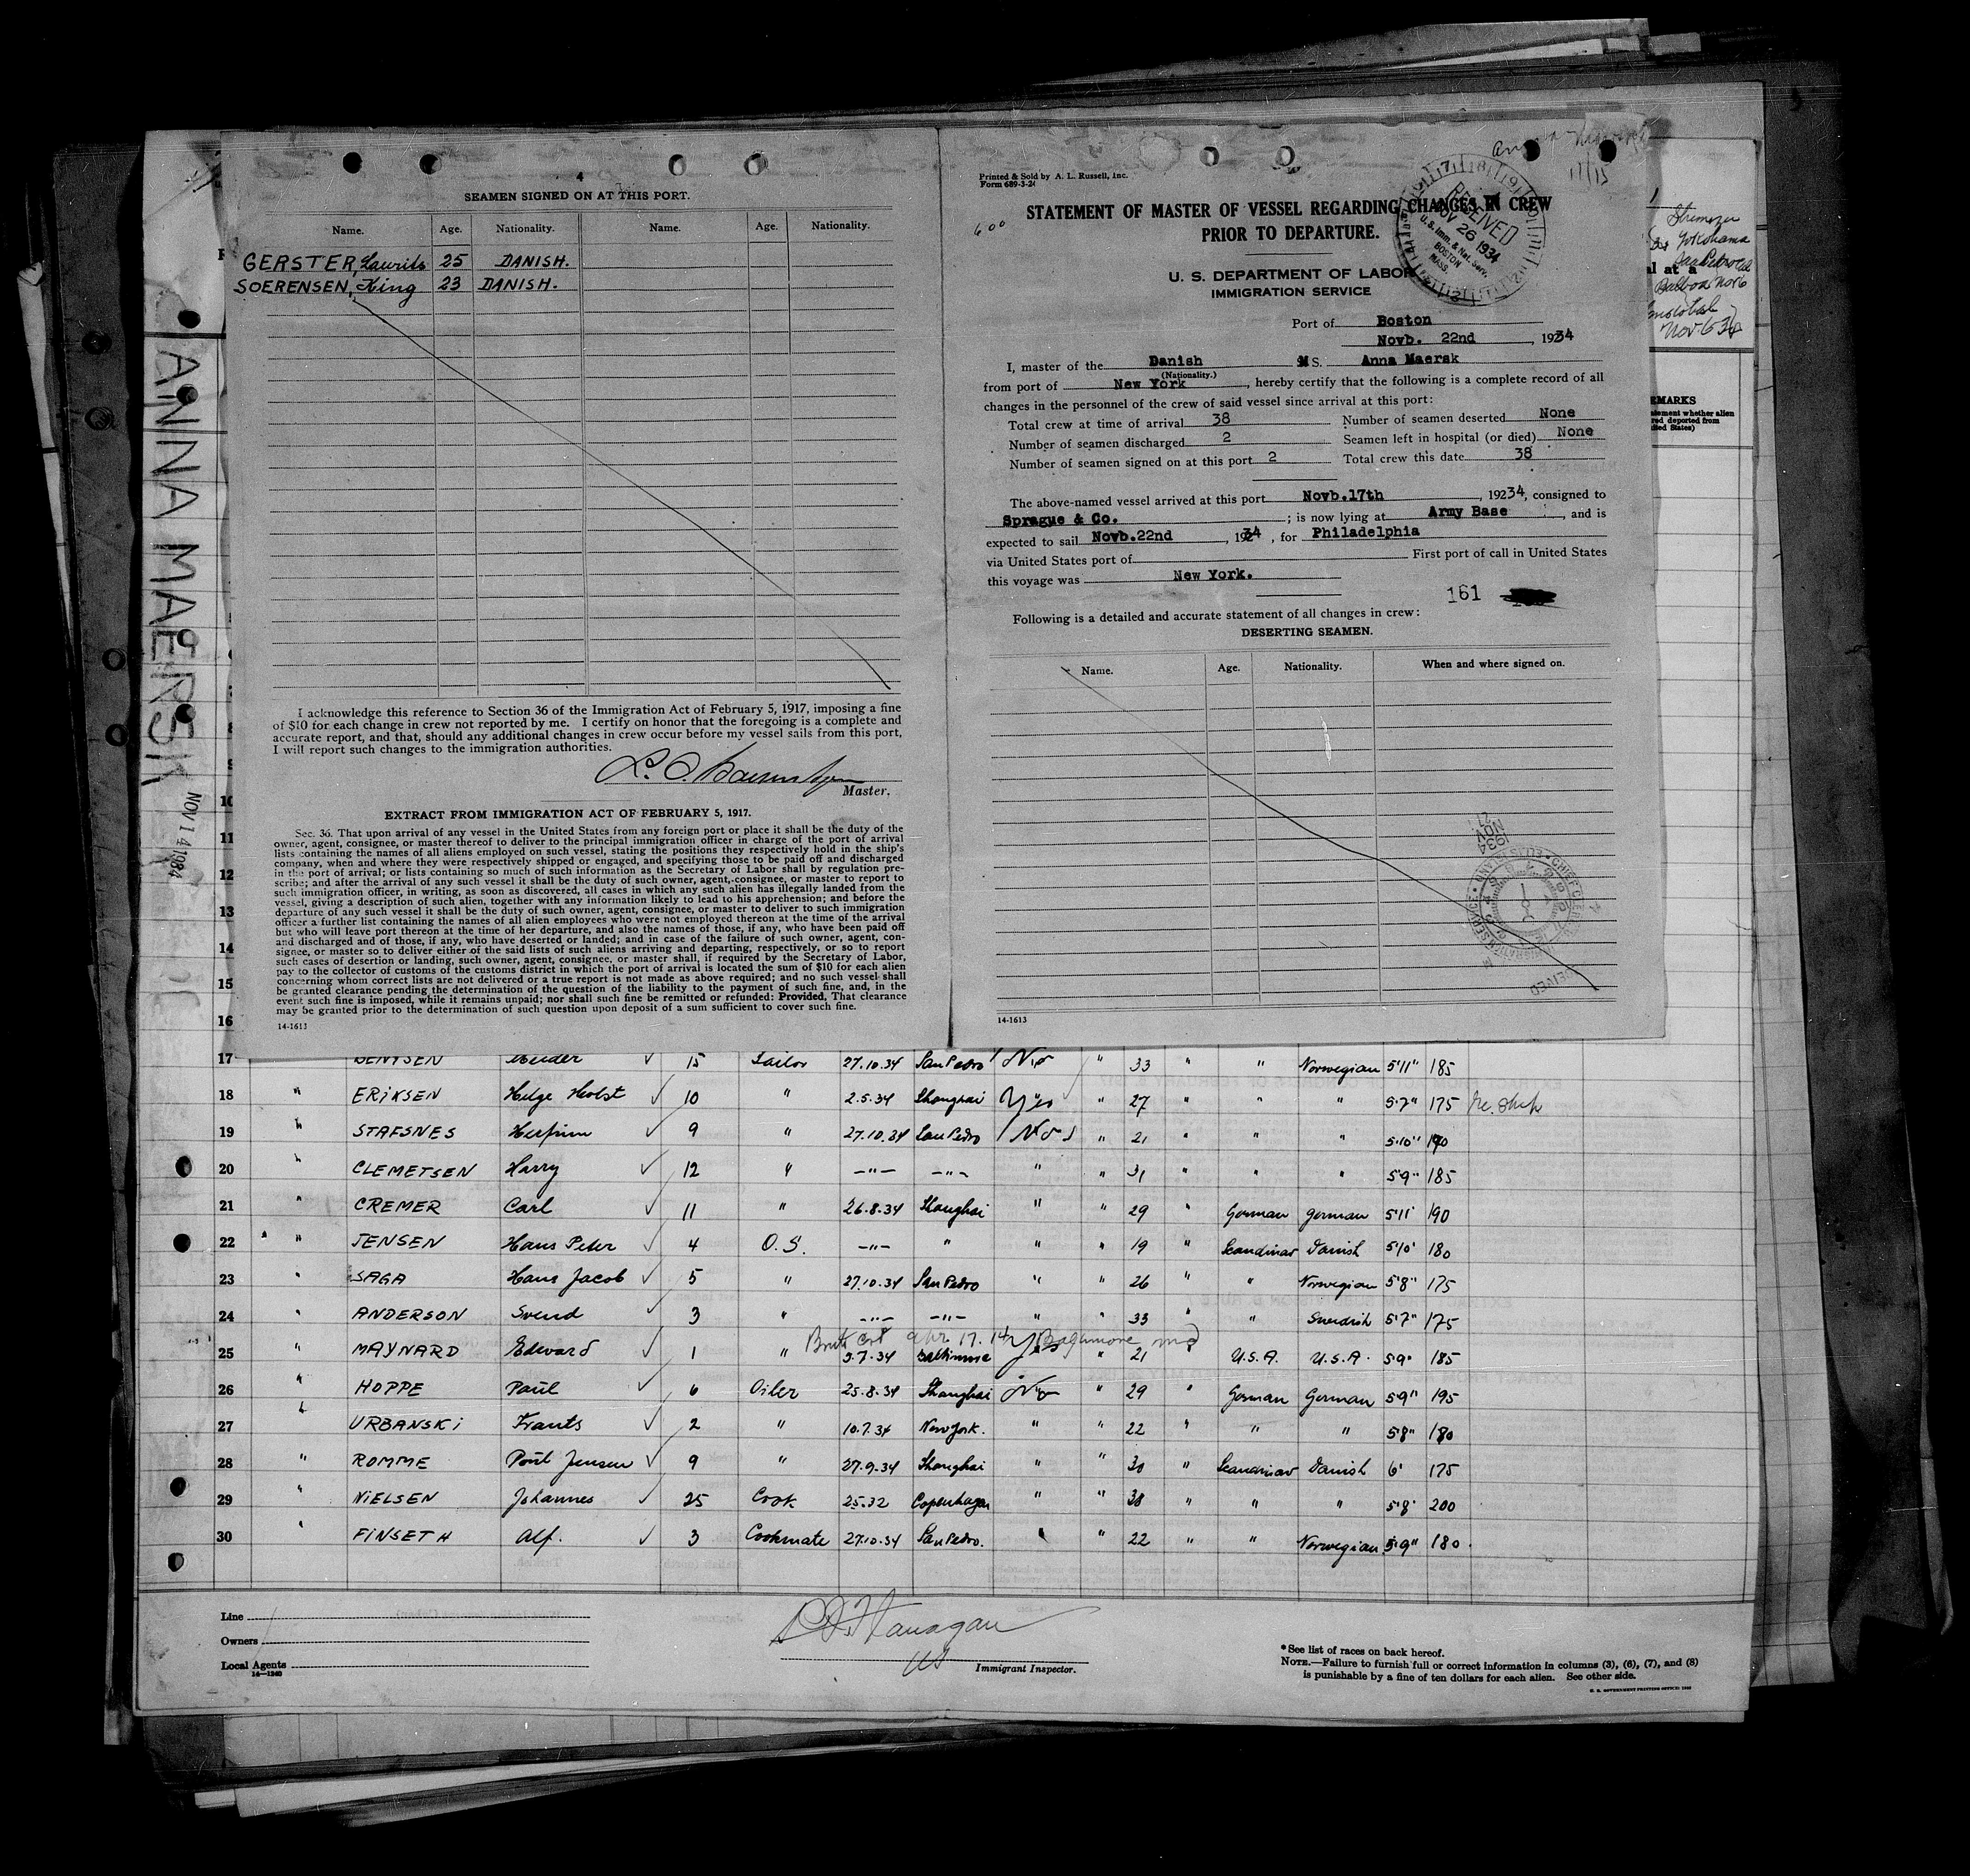 4
SEAMEN SIGNED ON AT THIS PORT.
Name. Age. Nationality. Name. Age. Nationality.
GERSTER, Laurits 25 DANISH.
SOERENSEN, King 23 DANISH.
I acknowledge this reference to Section 36 of the Immigration Act of February 5, 1917, imposing a fine
of $10 for each change in crew not reported by me. I certify on honor that the foregoing is a complete and
accurate report, and that, should any additional changes in crew occur before my vessel sails from this port,
I will report such changes to the immigration authorities.
Master.
EXTRACT FROM IMMIGRATION ACT OF FEBRUARY 5, 1917.
Sec. 36. That upon arrival of any vessel in the United States from any foreign port or place it shall be the duty of the
owner, agent, consignee, or master thereof to deliver to the principal immigration officer in charge of the port of arrival
lists containing the names of all aliens employed on such vessel, stating the positions they respectively hold in the ship's
company, when and where they were respectively shipped or engaged, and specifying those to be paid off and discharged
in the port of arrival; or lists containing so much of such information as the Secretary of Labor shall by regulation pre-
scribe; and after the arrival of any such vessel it shall be the duty of such owner, agent, consignee, or master to report to
such immigration officer, in writing, as soon as discovered, all cases in which any such alien has illegally landed from the
vessel, giving a description of such alien, together with any information likely to lead to his apprehension; and before the
departure of any such vessel it shall be the duty of such owner, agent, consignee, or master to deliver to such immigration
officer a further list containing the names of all alien employees who were not employed thereon at the time of the arrival
but who will leave port thereon at the time of her departure, and also the names of those, if any, who have been paid off
and discharged and of those, if any, who have deserted or landed; and in case of the failure of such owner, agent, con-
signee, or master so to deliver either of the said lists of such aliens arriving and departing, respectively, or so to report
such cases of desertion or landing, such owner, agent, consignee, or master shall, if required by the Secretary of Labor,
pay to the collector of customs of the customs district in which the port of arrival is located the sum of $10 for each alien
concerning whom correct lists are not delivered or a true report is not made as above required; and no such vessel shall
be granted clearance pending the determination of the question of the liability to the payment of such fine, and, in the
event such fine is imposed, while it remains unpaid; nor shall such fine be remitted or refunded: Provided, That clearance
may be granted prior to the determination of such question upon deposit of a sum sufficient to cover such fine.
14-1613
Printed & Sold by A. L. Russell, Inc.
Form 689-3-24
600
STATEMENT OF MASTER OF VESSEL REGARDING CHANGES IN CREW
PRIOR TO DEPARTURE.
RECEIVED
NOV 26 1934
U. S. Imm. & Nat. Serv.
BOSTON
MASS.
U. S. DEPARTMENT OF LABOR
IMMIGRATION SERVICE
Port of Boston
Novb. 22nd, 1934
I, master of the Danish M S. Anna Maersk
(Nationality.)
from port of New York, hereby certify that the following is a complete record of all
changes in the personnel of the crew of said vessel since arrival at this port:
Total crew at time of arrival 38 Number of seamen deserted None
Number of seamen discharged 2 Seamen left in hospital (or died) None
Number of seamen signed on at this port 2 Total crew this date 38
The above-named vessel arrived at this port Novb.17th, 19234, consigned to
Sprague & Co. ; is now lying at Army Base, and is
expected to sail Novb.22nd, 1934, for Philadelphia
via United States port of First port of call in United States
this voyage was New York.
161
Following is a detailed and accurate statement of all changes in crew:
DESERTING SEAMEN.
Name. Age. Nationality. When and where signed on.
14-1613
Yokohama
San Pedro
Balboa Nov 6
Cristobal
Nov 6 34
al at a
EMARKS
ANNA MAERSK
NOV 14 1934
10
11
12
13
14
15
16
17 BENTSEN ✓ 15 Sailor 27.10.34 San Pedro No " 33 " " Norwegian 5'11" 185
18 " ERIKSEN Helge Holst ✓ 10 " 2.5.34 Shanghai Yes " 27 " " " 5'7" 175
19 " STAFSNES Herfinn ✓ 9 " 27.10.34 San Pedro No " 21 " " " 5'10" 190
20 " CLEMETSEN Harry ✓ 12 " -"- -"- " " 31 " " " 5'9" 185
21 " CREMER Carl ✓ 11 " 26.8.34 Shanghai " " 29 " German German 5'11" 190
22 " JENSEN Hans Peter ✓ 4 O.S. -"- " " " 19 " Scandinav Danish 5'10" 180
23 " SAGA Hans Jacob ✓ 5 " 27.10.34 San Pedro " " 26 " " Norwegian 5'8" 175
24 " ANDERSON Svend ✓ 3 " -"- -"- " " 33 " " Swedish 5'7" 175
Birth Cert Apr 17. 14 Baltimore, md
25 " MAYNARD Edward ✓ 1 " 3.7.34 Baltimore Yes " 21 U.S.A. U.S.A. 5'9" 185
26 " HOPPE Paul ✓ 6 Oiler 25.8.34 Shanghai No " 29 " German German 5'9" 195
27 " URBANSKI Frants ✓ 2 " 10.7.34 New York. " " 22 " " " 5'8" 180
28 " ROMME Poul Jensen ✓ 9 " 27.9.34 Shanghai " " 30 " Scandinav Danish 6' 175
29 " NIELSEN Johannes ✓ 25 Cook 25.32 Copenhagen " " 38 " " " 5'8" 200
30 " FINSETH Alf. ✓ 3 Cookmate 27.10.34 San Pedro. " " 22 " " Norwegian 5'9" 180
Line
Owners
Local Agents
14-1240
Flanagan
Immigrant Inspector.
*See list of races on back hereof.
NOTE.—Failure to furnish full or correct information in columns (3), (6), (7), and (8)
is punishable by a fine of ten dollars for each alien. See other side.